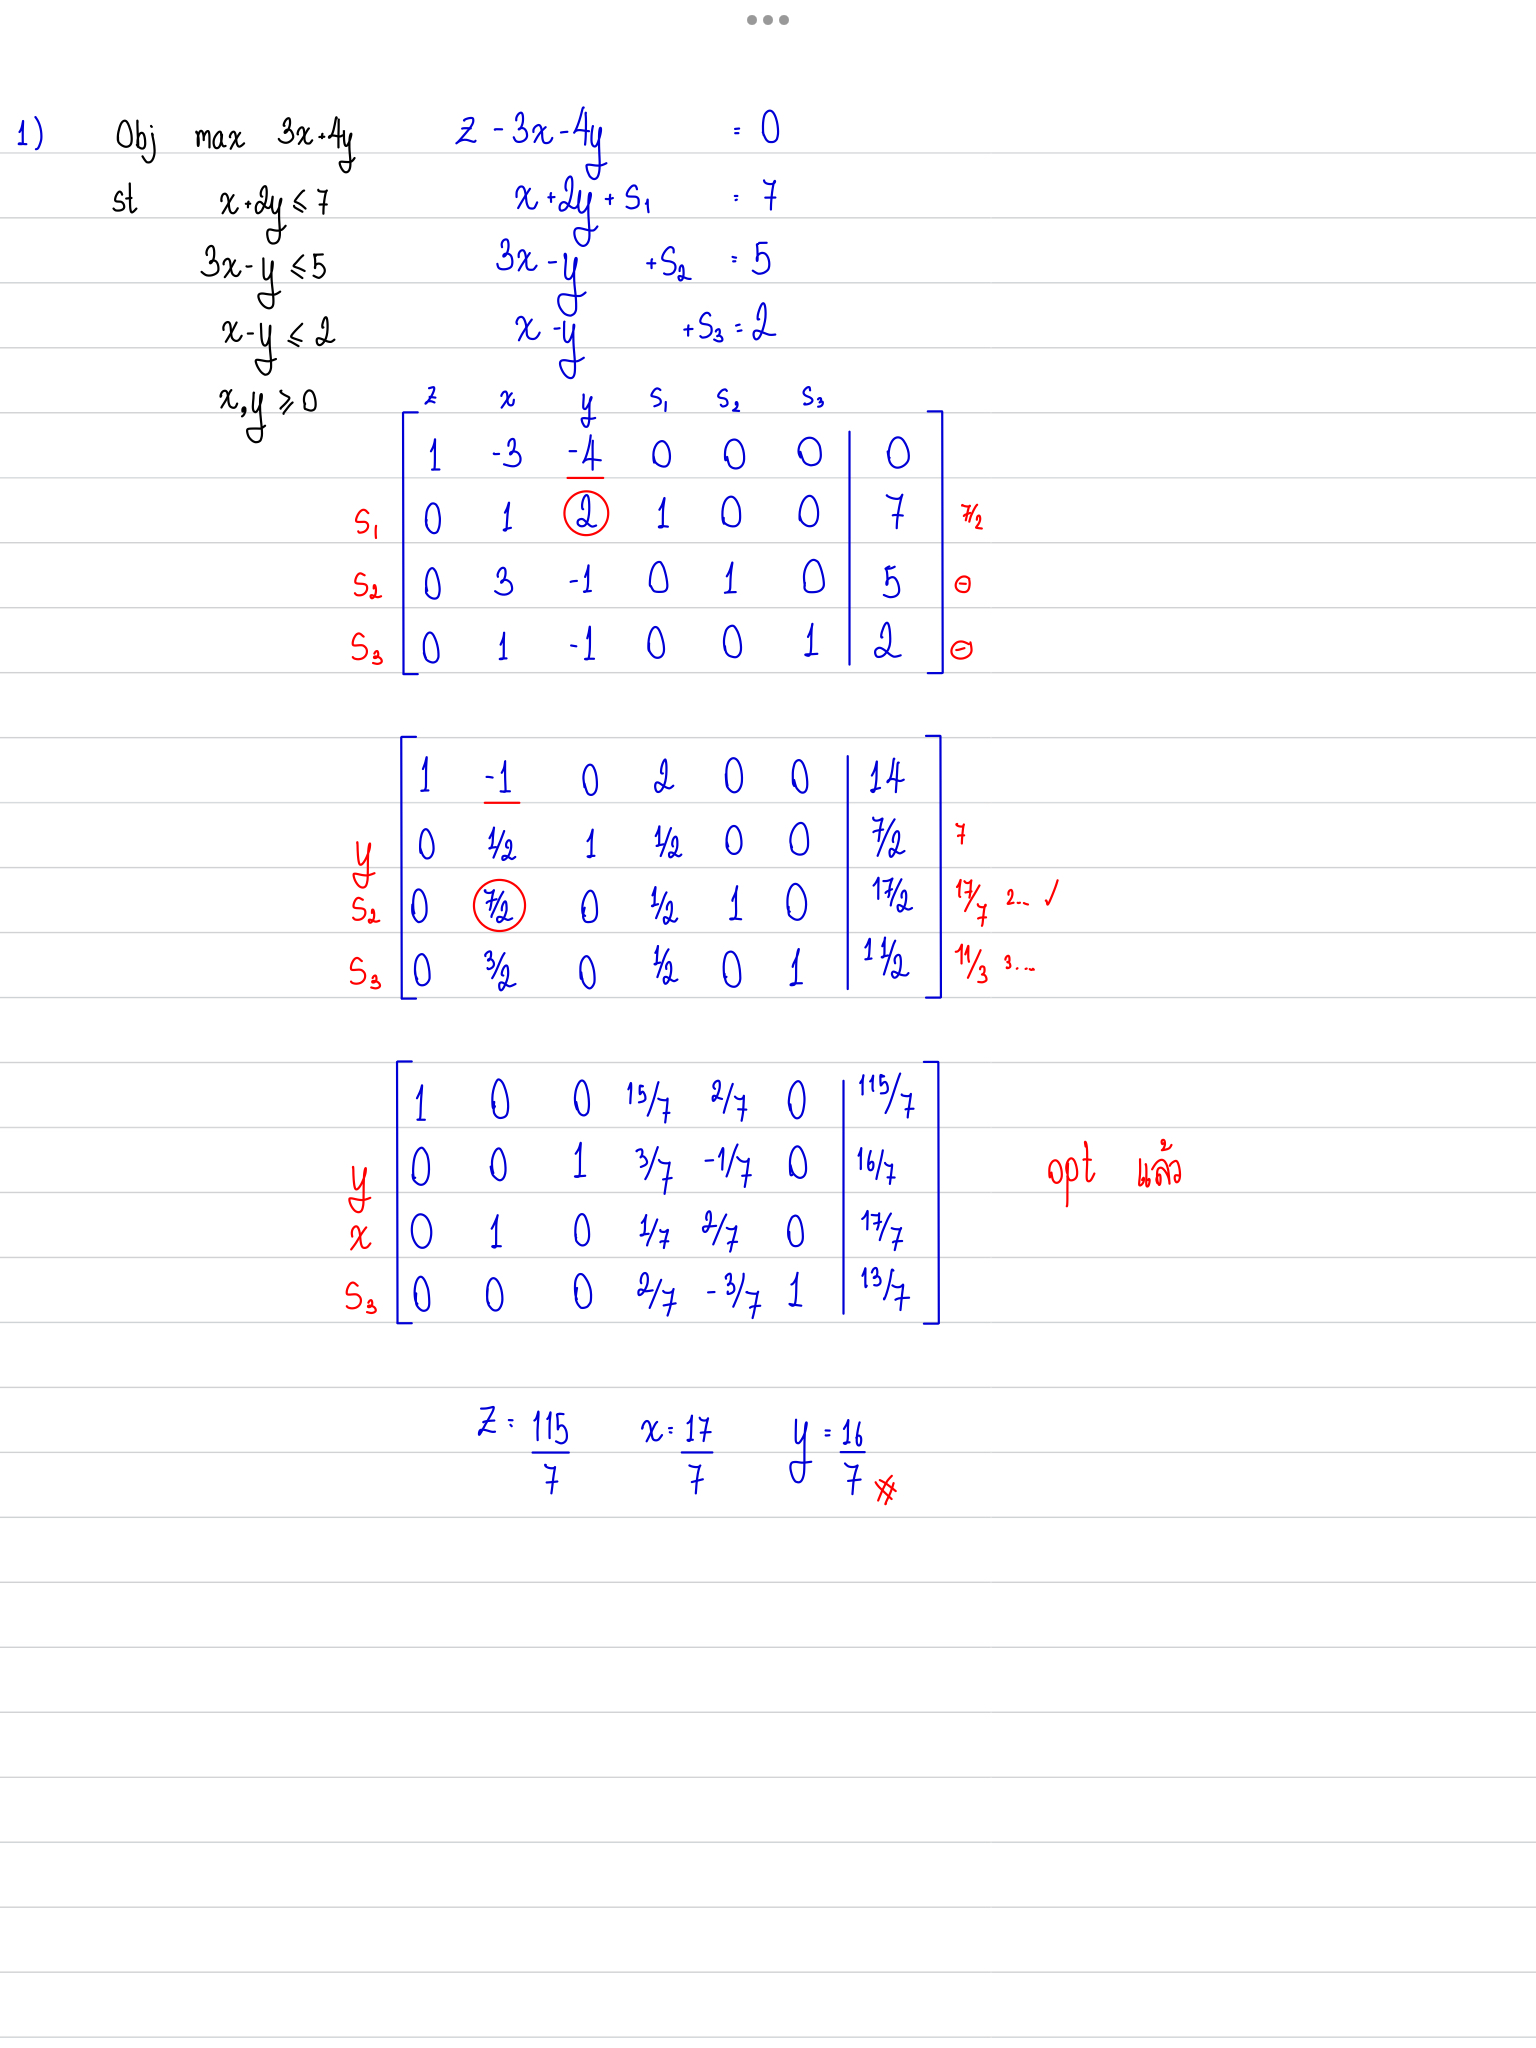 1) Obj max 3x+4y z - 3x - 4y = 0
st x+2y ≤ 7 x + 2y + S₁ = 7
3x - y ≤ 5 3x - y + S₂ = 5
x - y ≤ 2 x - y + S₃ = 2
x, y ≥ 0 z x y S₁ S₂ S₃
1 -3 -4 0 0 0 | 0
S₁ 0 1 2 1 0 0 | 7 7/2
S₂ 0 3 -1 0 1 0 | 5 ⊖
S₃ 0 1 -1 0 0 1 | 2 ⊖
1 -1 0 2 0 0 | 14
y 0 1/2 1 1/2 0 0 | 7/2 7
S₂ 0 7/2 0 1/2 1 0 | 17/2 17/7 2... ✓
S₃ 0 3/2 0 1/2 0 1 | 11/2 11/3 3...
1 0 0 15/7 2/7 0 | 115/7
y 0 0 1 3/7 -1/7 0 | 16/7 opt แล้ว
x 0 1 0 1/7 2/7 0 | 17/7
S₃ 0 0 0 2/7 -3/7 1 | 13/7
z = 115/7 x = 17/7 y = 16/7 #